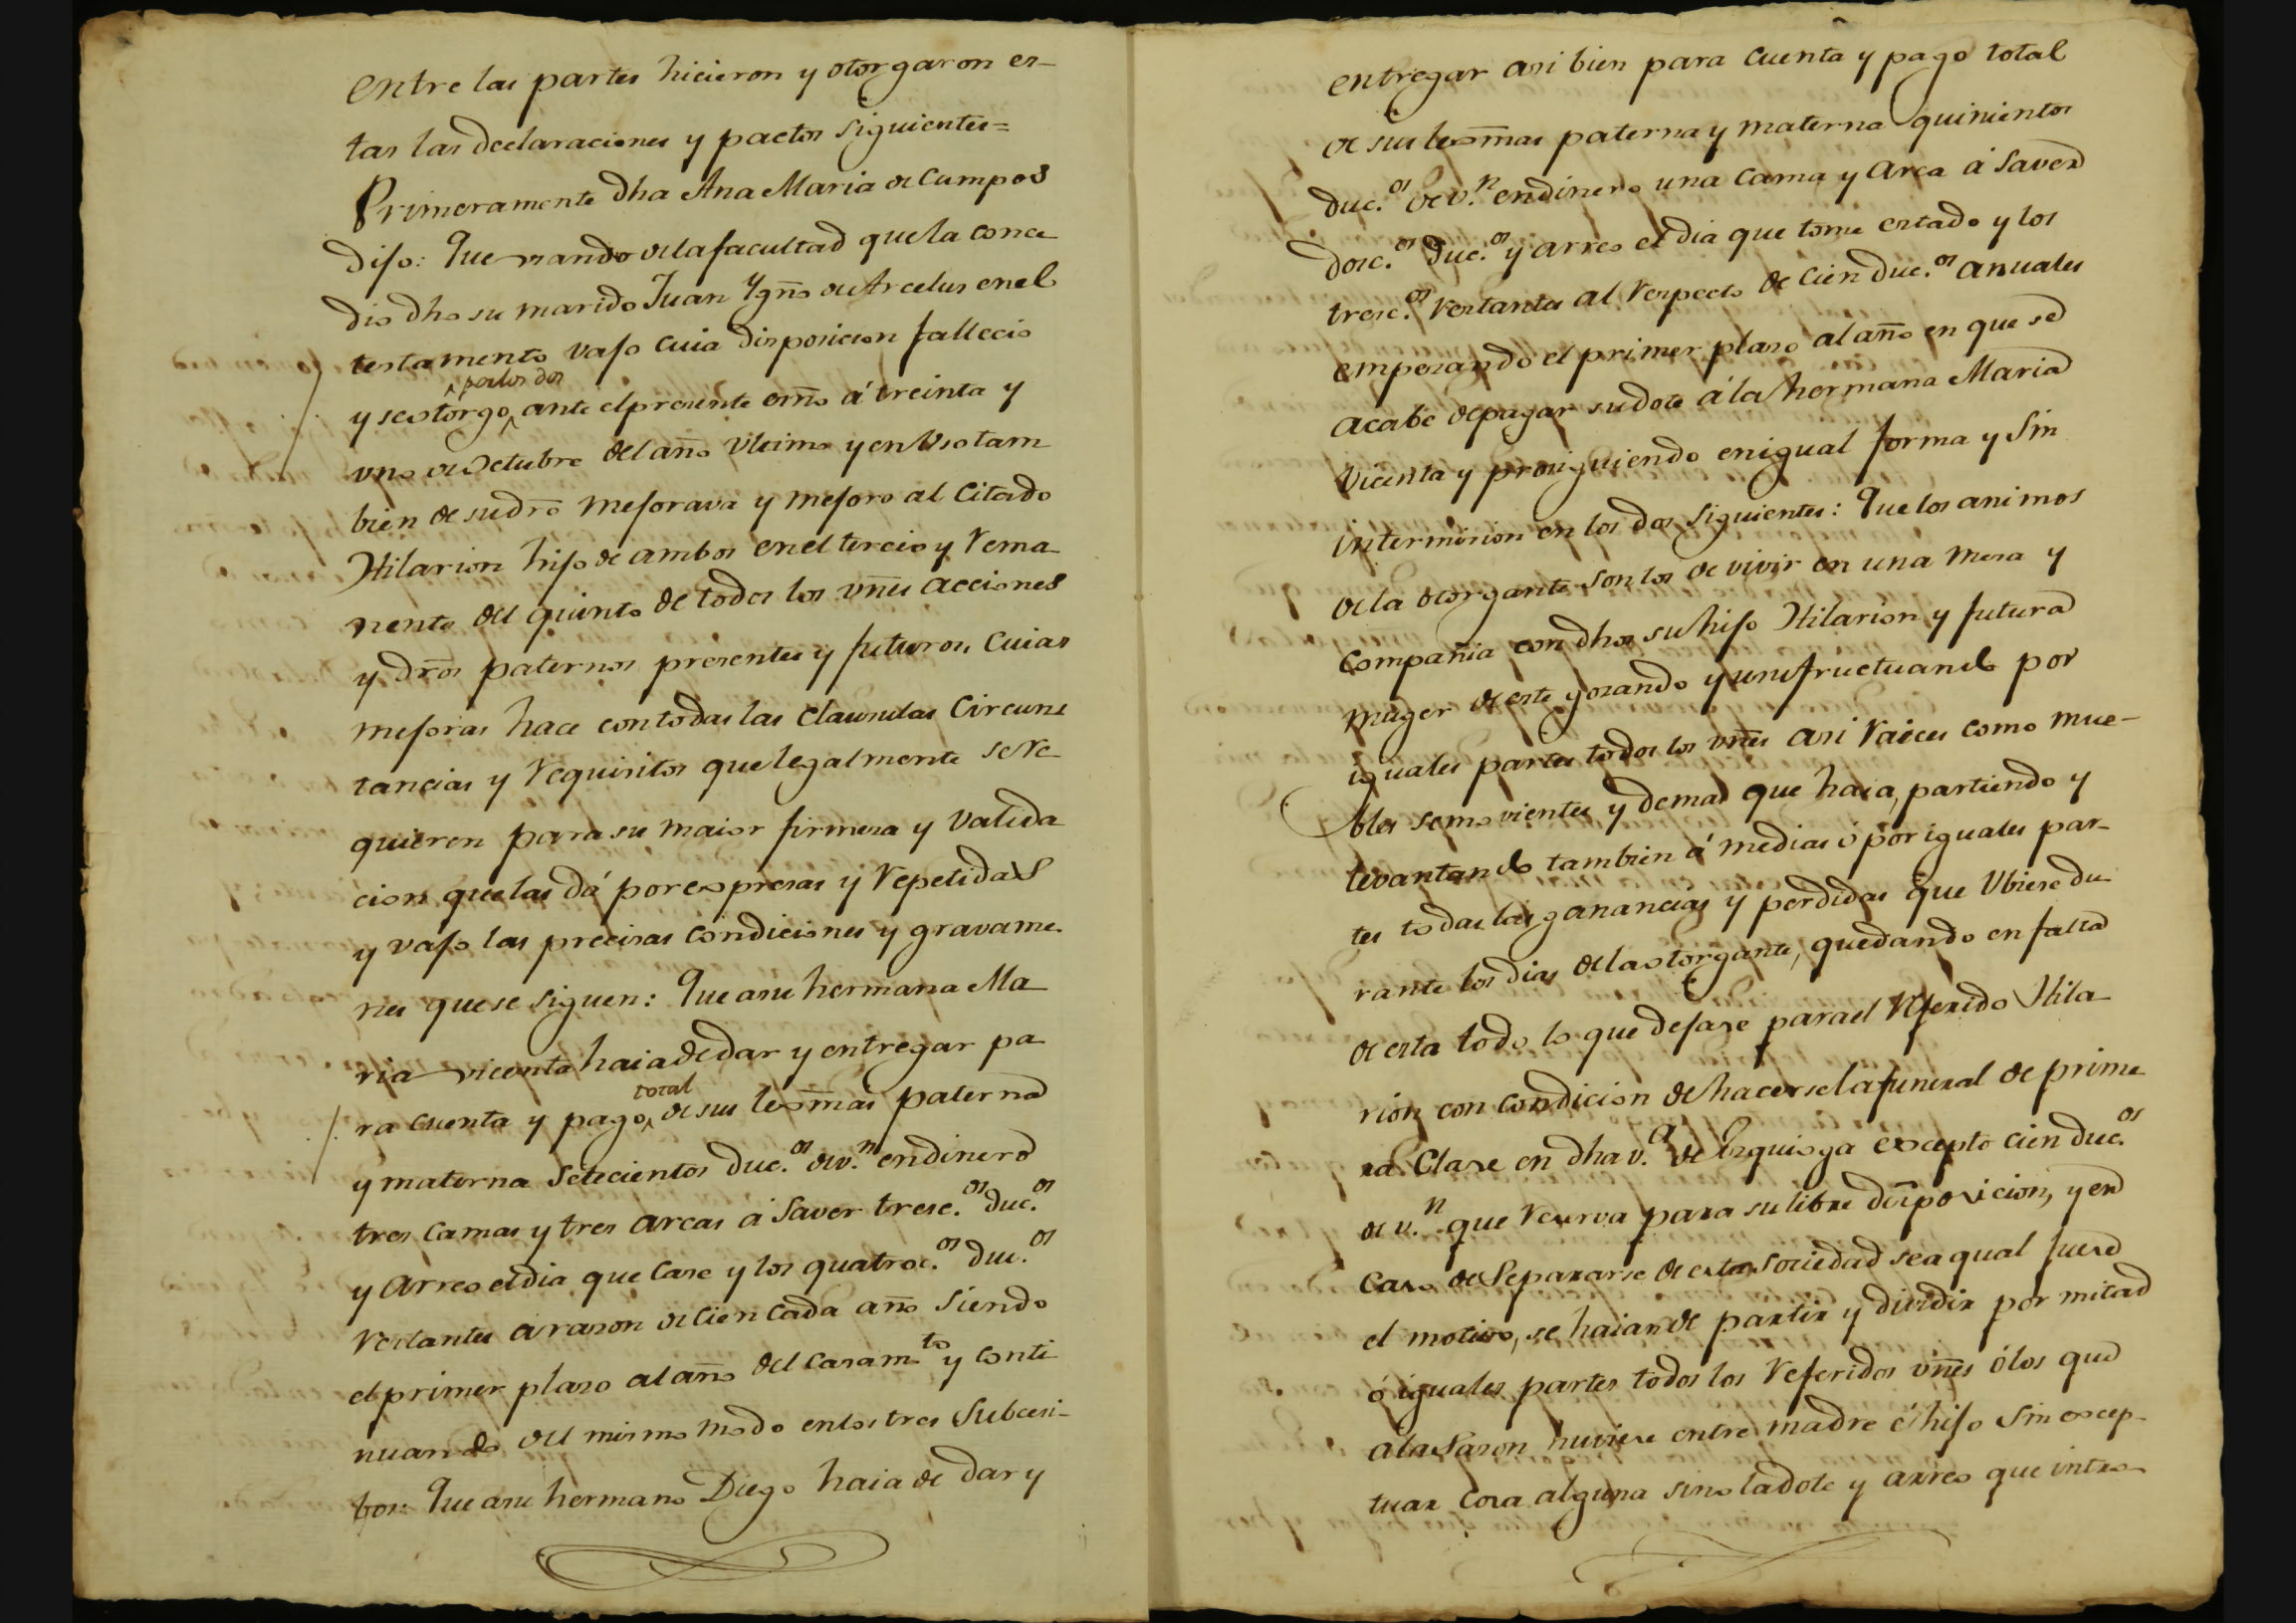 entre las partes hicieron y otorgaron es-
tas las declaraciones y pactos siguientes=
Primeramente dha Ana Maria de Campos
dijo: Que usando de la facultad que la conce
dio dho su marido Juan Ygn.o de Arcelus en el
testamento vajo cuia disposicion fallecio
por los dos
y se otorgo ante el presente essno á treinta y
uno de Octubre del año ultimo y en Uso tam
bien de su dro mejorava y mejoro al Citado
Hilarion hijo de ambos en el tercio y Rema
nente del quinto de todos los vnes acciones
y dros paternos presentes y futuros, Cuias
mejoras hace con todas las Clausulas Circuns
tancias y Requisitos que legalmente se Re
quieren para su maior firmeza y Valida
cion que las dá por expresas y Repetidas
y vajo las precisas Condiciones y gravame
nes que se siguen: Que a su hermana Ma
ria vicenta haia de dar y entregar pa
total
ra cuenta y pago de sus lexmas paterna
y materna Setecientos duc.os de v.n en dinero
tres Camas y tres arcas á Saver tresc.os duc.os
y Arreo el dia que Case y los quatroc.os duc.os
Restantes a razon de Cien Cada año Siendo
el primer plazo al año del Casam.to y Conti
nuando del mismo modo en los tres Subcesi-
bos: Que a su hermano Diego haia de dar y
entregar asi bien para Cuenta y pago total
de sus lexmas paterna y materna quinientos
duc.os de v.n en dinero una Cama y Arca á Saver
dosc.os duc.os y arreo el dia que tome estado y los
tresc.os Restantes al Respecto de Cien duc.os anuales
empezando el primer plazo al año en que se
acabe de pagar su dote á la hermana Maria
Vicenta y prosiguiendo en igual forma y Sin
intermision en los dos Siguientes: Que los animos
de la otorgante son los de vivir en una mesa y
Compañia con dhos su hijo Hilarion y futura
muger de este gozando y usufructuando por
iguales partes todos los vnes asi Raices como mue-
bles semovientes y demas que haia, partiendo y
levantando tambien á medias ó por iguales par-
tes todas las ganancias y perdidas que Ubiere du
rante los dias de la otorgante, quedando en falta
de esta todo lo que dejare para el Referido Hila
rion con condicion de hacersela funeral de prime
ra Clase en dha v.a de Ezquioga excepto cien duc.os
de v.n que Reserva para su libre disposicion, y en
Caso de Separarse de esta Sociedad sea qual fuere
el motivo, se haian de partir y dividir por mitad
ó iguales partes todos los Referidos vnes ó los que
a la Sazon huviere entre madre é hijo Sin excep-
tuar Cosa alguna sino la dote y arreo que intro